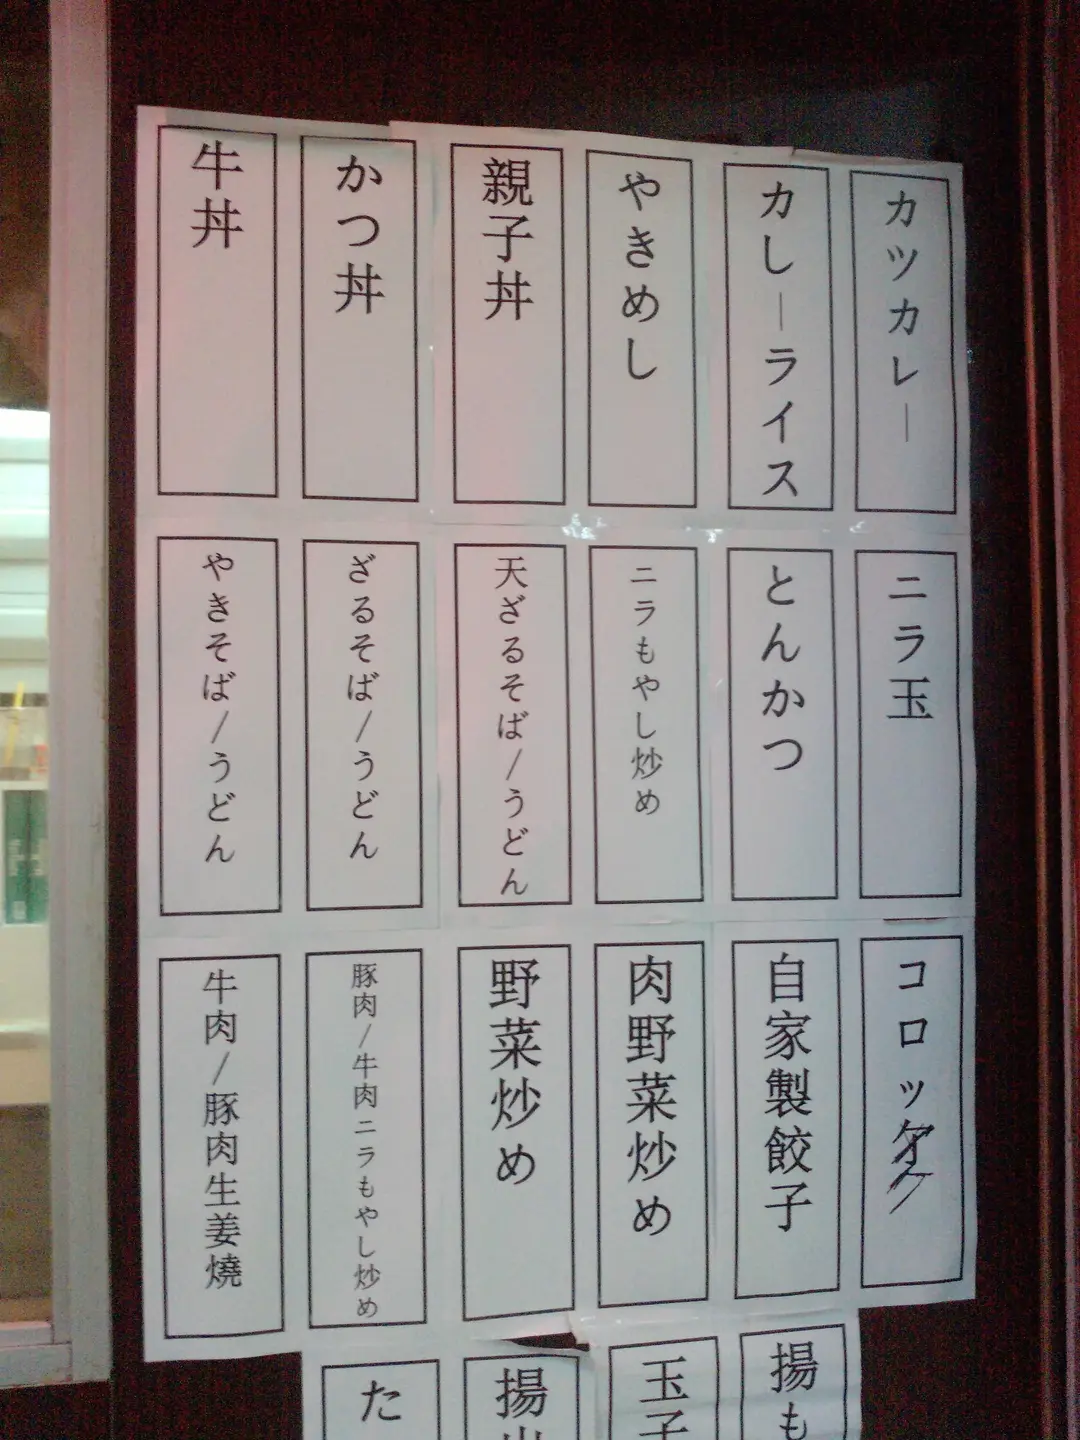 カツカレー
カしーライス
やきめし
親子丼
かつ丼
牛丼
ニラ玉
とんかつ
ニラもやし炒め
天ざるそば/うどん
ざるそば/うどん
やきそば/うどん
コロッケ
自家製餃子
肉野菜炒め
野菜炒め
豚肉/牛肉ニラもやし炒め
牛肉/豚肉生姜燒
揚も
玉子
揚
た